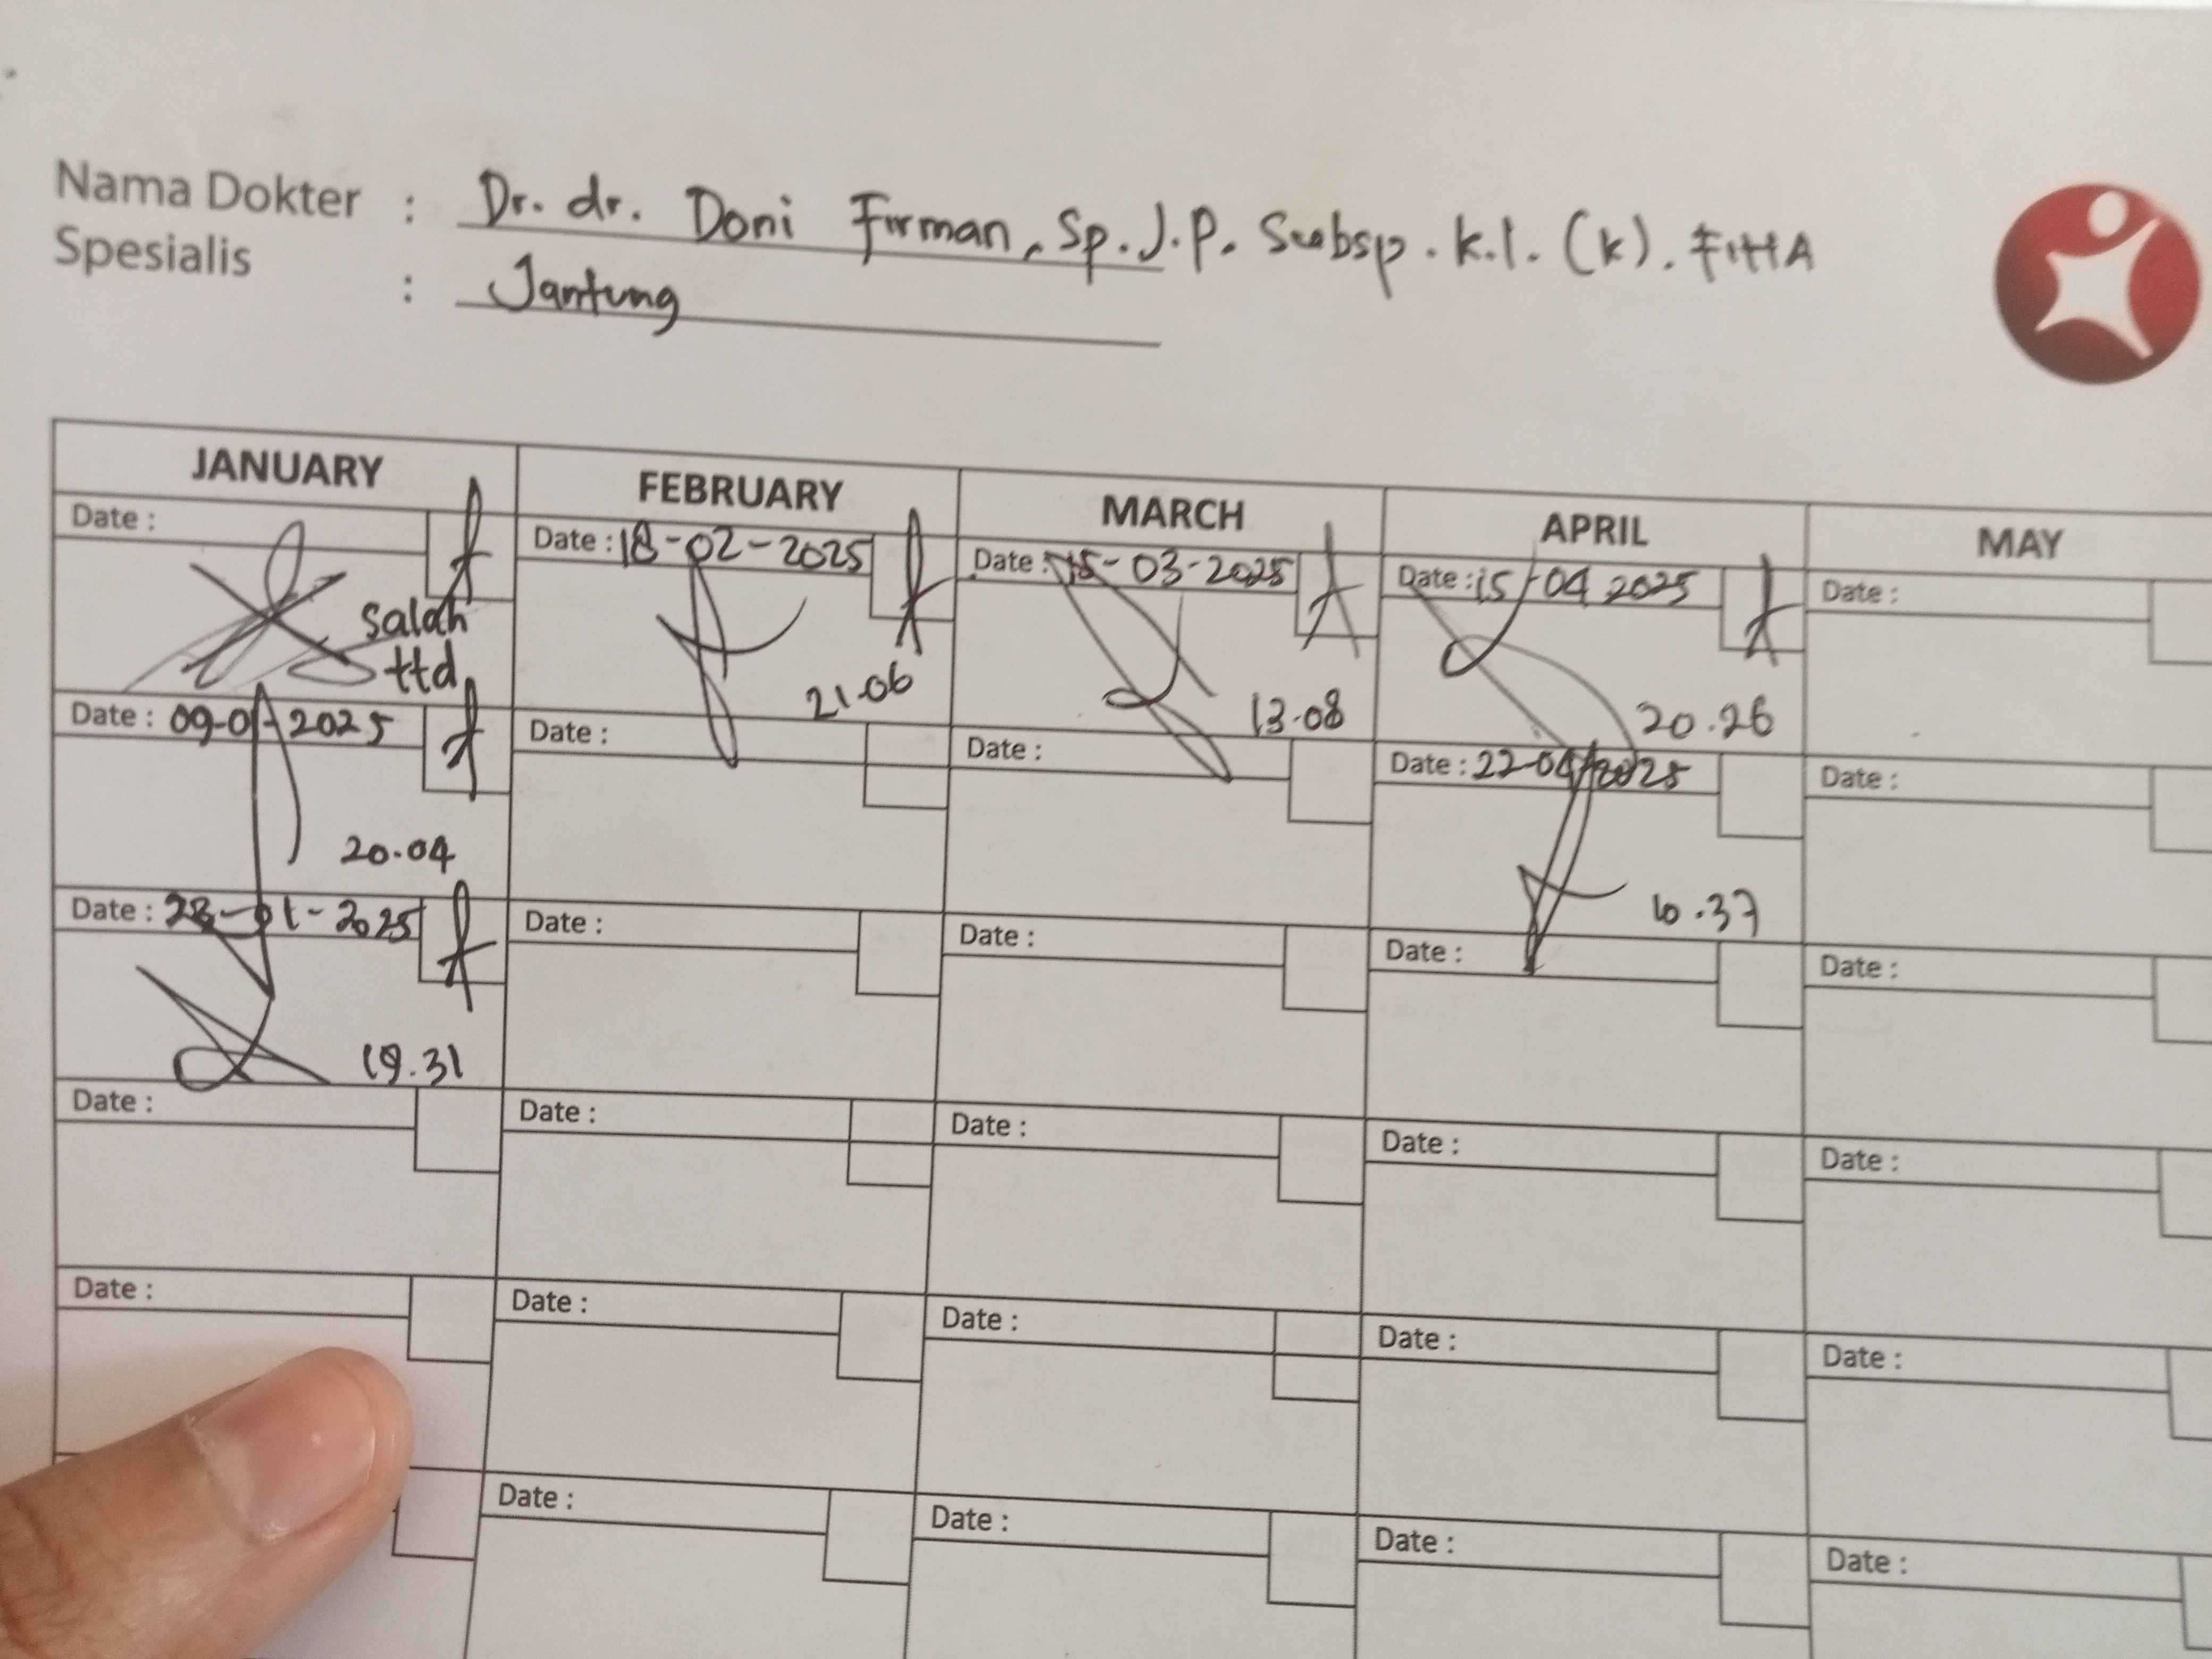 Nama Dokter : Dr. dr. Doni Firman, Sp.J.P. Subsp. K.I. (K). FIHA
Spesialis : Jantung
JANUARY FEBRUARY MARCH APRIL MAY
Date : Date : 18-02-2025 Date : 15-03-2025 Date : 15-04 2025 Date :
salah
ttd
21.06 13.08 20.26
Date : 09-01-2025 Date : Date : Date : 22-04-2025 Date :
20.04 10.37
Date : 28-01-2025 Date : Date : Date : Date :
19.31
Date : Date : Date : Date : Date :
Date : Date : Date : Date : Date :
Date : Date : Date : Date :